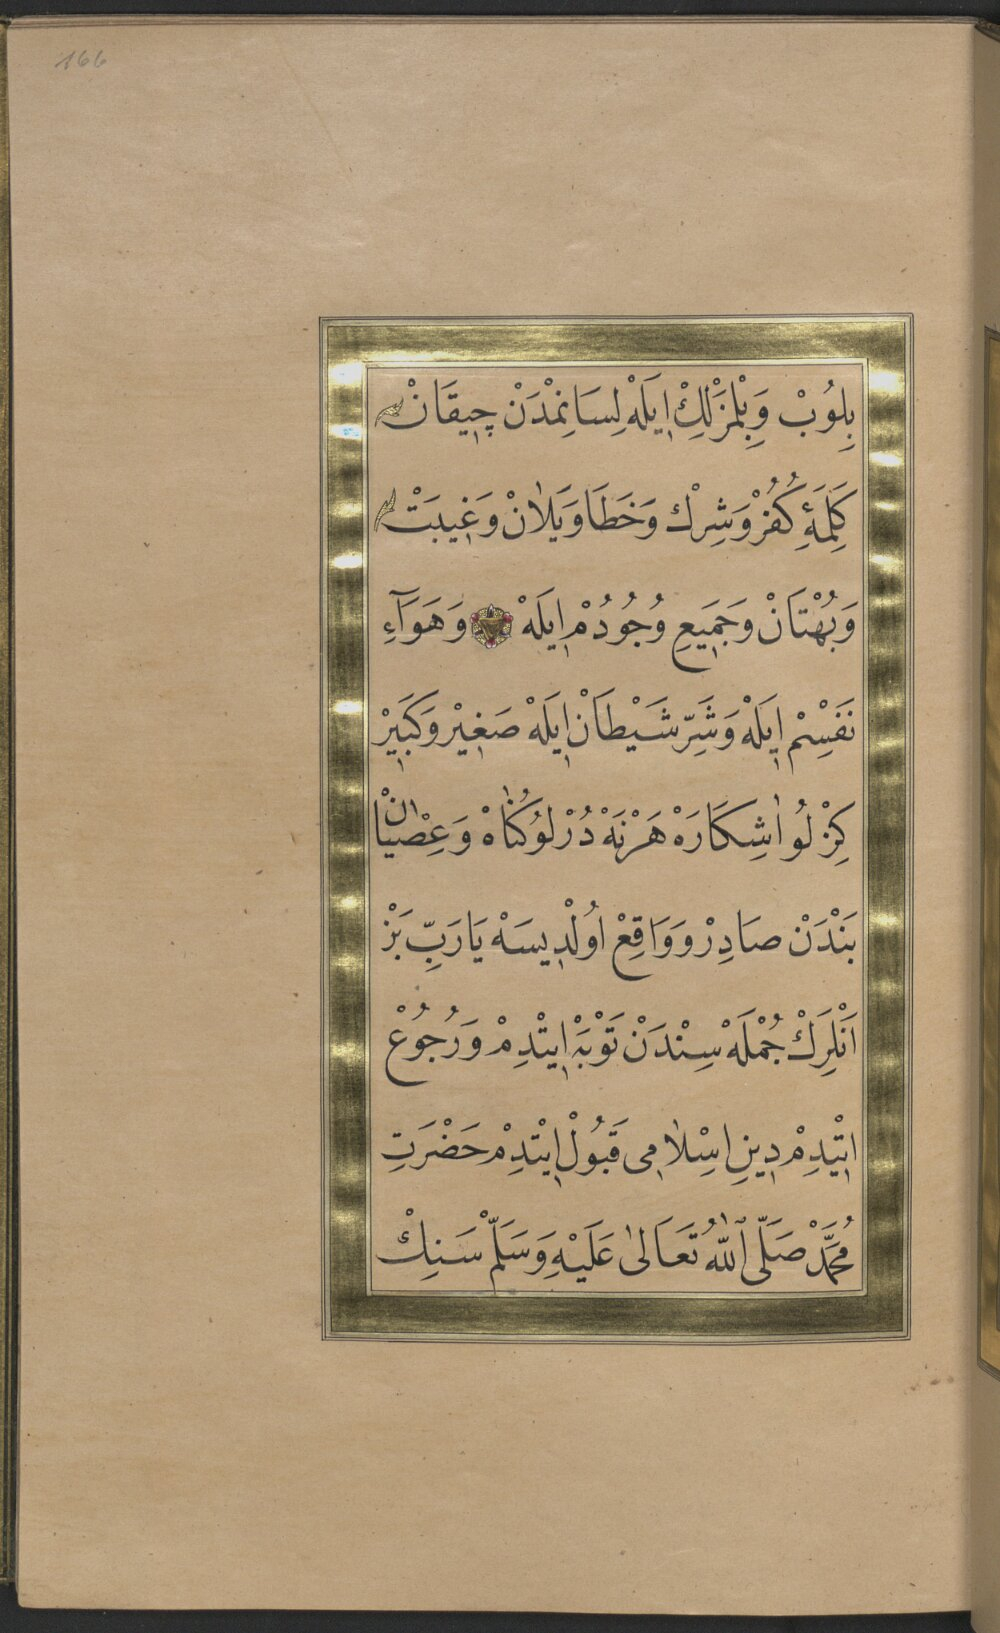 166
بِلُوبْ وَبِلْمَزْلِكْ اِيلَهْ لِسَانِمْدَنْ چِيقَانْ
كَلِمَۀِ كُفُرْ وَشِرْكْ وَخَطَا وَيَلَانْ وَغِيبَتْ
وَبُهْتَانْ وَجَمِيعِ وُجُودُمْ اِيلَهْ وَهَوَآءِ
نَفَسِمْ اِيلَهْ وَشَرِّ شَيْطَانْ اِيلَهْ صَغِيْر وَكَبِيْر
كِزْلُو اٰشِكَارَهْ هَرْنَهْ دُرْلُو كُنَاهْ وَعِصْيَانْ
بَنْدَنْ صَادِرْ وَوَاقِعْ اُولْدِيسَهْ يَارَبِّ بَزْ
اَنْلَرِكْ جُمْلَهْ سِنْدَنْ تَوْبَهْ اِيتْدِمْ وَرُجُوعْ
اِيتْدِمْ دِينِ اِسْلَامِى قَبُولْ اِيتْدِمْ حَضْرَتِ
مُحَمَّدْ صَلَّى اللّٰهُ تَعَالىٰ عَلَيْهِ وَسَلَّمْ سَنِكْ